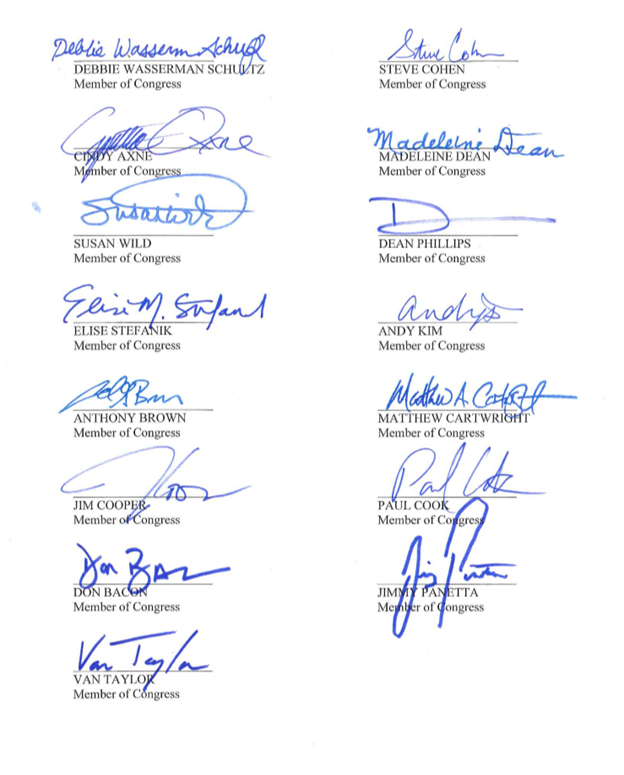 Debbie Wasserman Schultz
DEBBIE WASSERMAN SCHULTZ
Member of Congress
Steve Cohen
STEVE COHEN
Member of Congress
Cynthia Axne
CINDY AXNE
Member of Congress
Madeleine Dean
MADELEINE DEAN
Member of Congress
Susan Wild
SUSAN WILD
Member of Congress
D
DEAN PHILLIPS
Member of Congress
Elise M. Stefanik
ELISE STEFANIK
Member of Congress
Andy
ANDY KIM
Member of Congress
Brown
ANTHONY BROWN
Member of Congress
Matthew A. Cartwright
MATTHEW CARTWRIGHT
Member of Congress
J Coop
JIM COOPER
Member of Congress
Paul Cook
PAUL COOK
Member of Congress
Don Bacon
DON BACON
Member of Congress
Jimmy Panetta
JIMMY PANETTA
Member of Congress
Van Taylor
VAN TAYLOR
Member of Congress